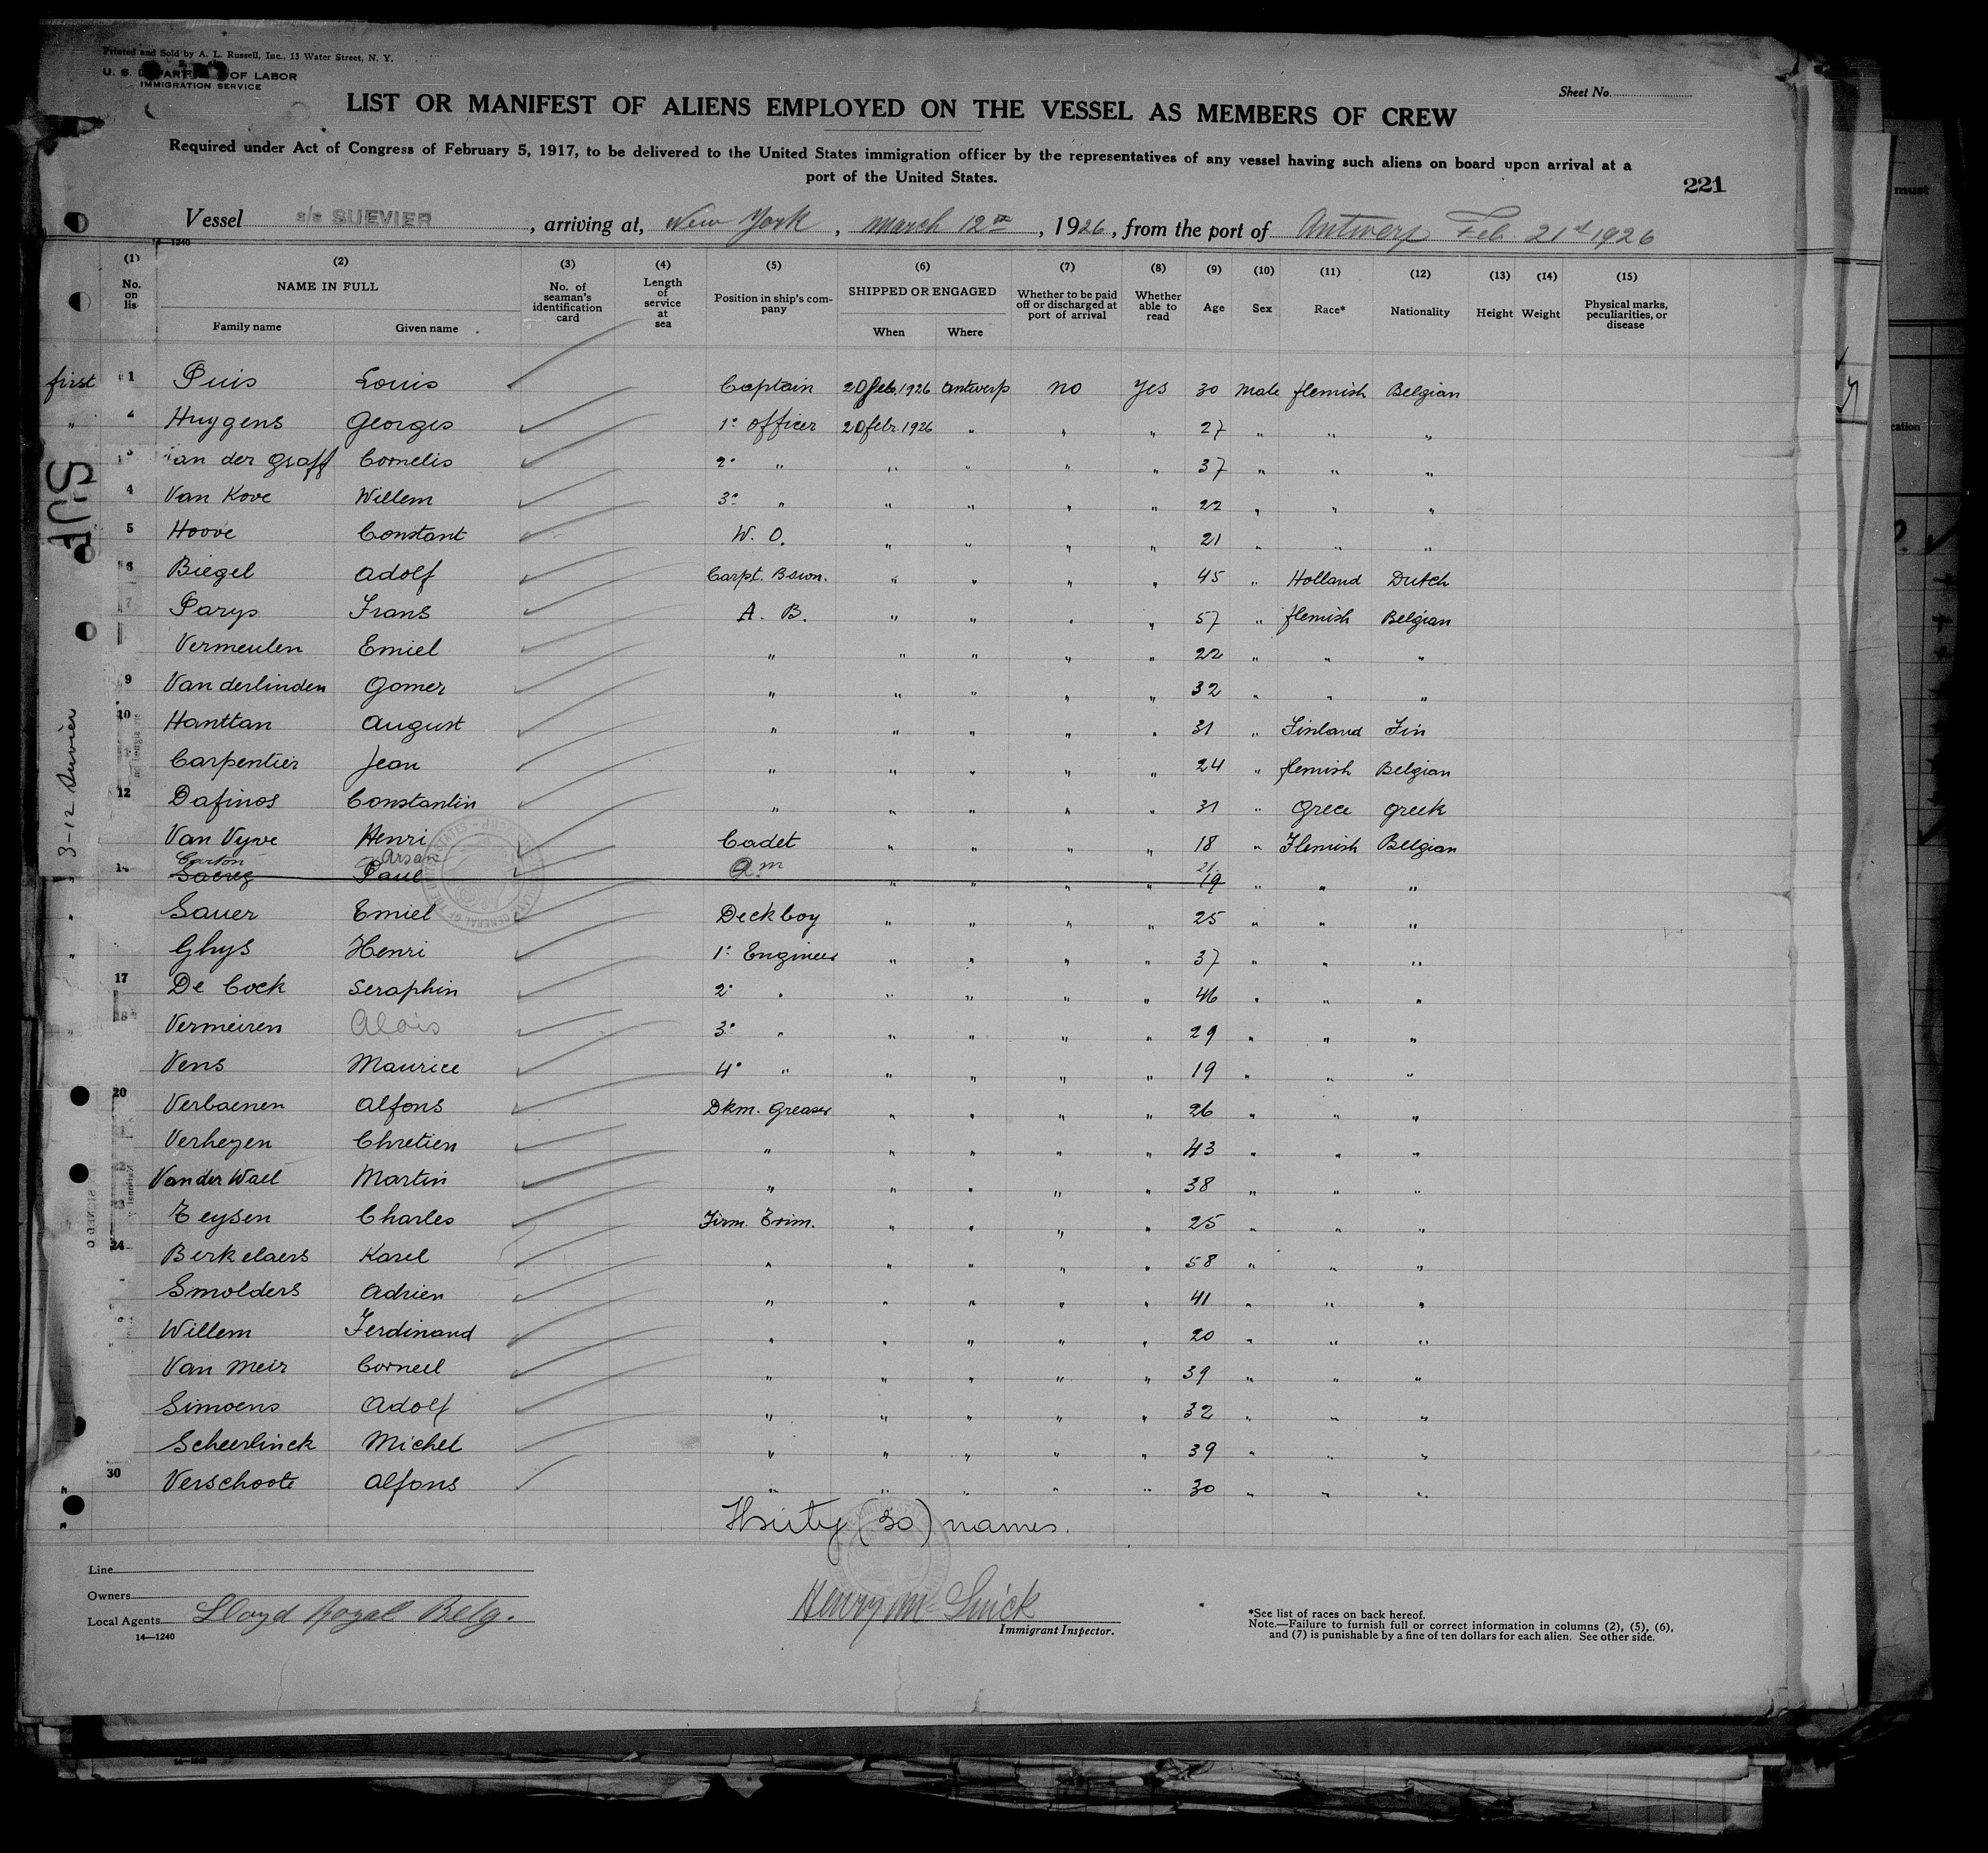 Printed and Sold by A. L. Russell, Inc., 13 Water Street, N. Y.
U. S. DEPARTMENT OF LABOR
IMMIGRATION SERVICE
Sheet No.
LIST OR MANIFEST OF ALIENS EMPLOYED ON THE VESSEL AS MEMBERS OF CREW
Required under Act of Congress of February 5, 1917, to be delivered to the United States immigration officer by the representatives of any vessel having such aliens on board upon arrival at a
port of the United States.
221
Vessel s/s SUEVIER, arriving at, New York, March 12th, 1926, from the port of Antwerp Feb. 21st 1926
14-1240
(1) No. on lis (2) NAME IN FULL Family name Given name (3) No. of seaman's identification card (4) Length of service at sea (5) Position in ship's company (6) SHIPPED OR ENGAGED When Where (7) Whether to be paid off or discharged at port of arrival (8) Whether able to read (9) Age (10) Sex (11) Race* (12) Nationality (13) Height (14) Weight (15) Physical marks, peculiarities, or disease
first 1 Puis Louis Captain 20 feb. 1926 Antwerp no yes 30 male flemish Belgian
" Huygens Georges 1° officer 20 febr. 1926 " " " 27 " " "
3 Van der Graff Cornelis 2° " " " " " 37 " " "
4 Van Kove Willem 3° " " " " " 22 " " "
5 Hoove Constant W. O. " " " " 21 " " "
6 Biegel Adolf Carpt. Bswn. " " " " 45 " Holland Dutch
7 Parys Frans A. B. " " " " 57 " flemish Belgian
Vermeulen Emiel " " " " " 22 " " "
9 Vanderlinden Gomer " " " " " 32 " " "
10 Hanttan August " " " " " 31 " Finland Fin
Carpentier Jean " " " " " 24 " flemish Belgian
12 Dafinos Constantin " " " " " 31 " Grece Greek
Van Vyve Henri Cadet " " " " 18 " Flemish Belgian
Carton Arsan 21
14 Paul " " " " 19 " " "
" Sauer Emiel Deckboy " " " " 25 " " "
" Ghys Henri 1° Engineer " " " " 37 " " "
17 De Cock Seraphin 2° " " " " " 46 " " "
18 Vermeiren Alois 3° " " " " " 29 " " "
Vens Maurice 4° " " " " " 19 " " "
20 Verbaenen Alfons Dkm. Greaser " " " " 26 " " "
21 Verheyen Chretien " " " " " 43 " " "
Van der Wael Martin " " " " " 38 " " "
23 Teysen Charles Firm. Trim. " " " " 25 " " "
24 Berkelaers Karel " " " " " 58 " " "
Smolders Adrien " " " " " 41 " " "
Willem Ferdinand " " " " " 20 " " "
Van Meir Corneel " " " " " 39 " " "
Simoens Adolf " " " " " 32 " " "
Scheerlinck Michel " " " " " 39 " " "
30 Verschoote Alfons " " " " " 30 " " "
Thirty (30) names.
3-12 Suevier
Line
Owners
Local Agents Lloyd Royal Belg.
14—1240
Henry
Immigrant Inspector.
*See list of races on back hereof.
Note.—Failure to furnish full or correct information in columns (2), (5), (6),
and (7) is punishable by a fine of ten dollars for each alien. See other side.
must